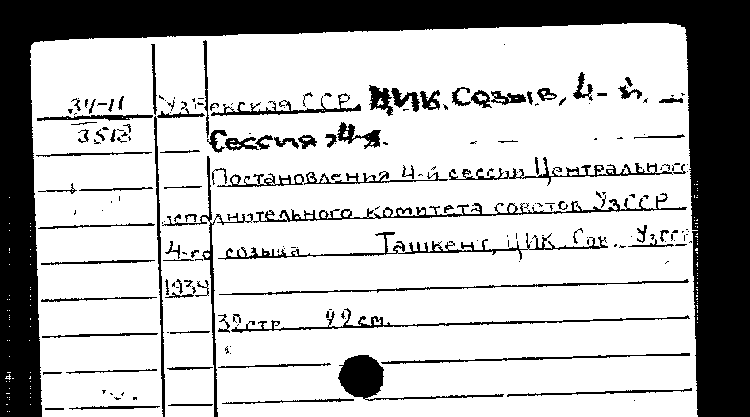 34-11 Узбекская ССР. ЦИК. Созыв, 4-й.
3513 Сессия, 4-я.
Постановления 4-й сессии Центрального
исполнительного комитета советов УзССР
4-го созыва. Ташкент, ЦИК Сов. УзССР
1934
32 стр. 22 см.